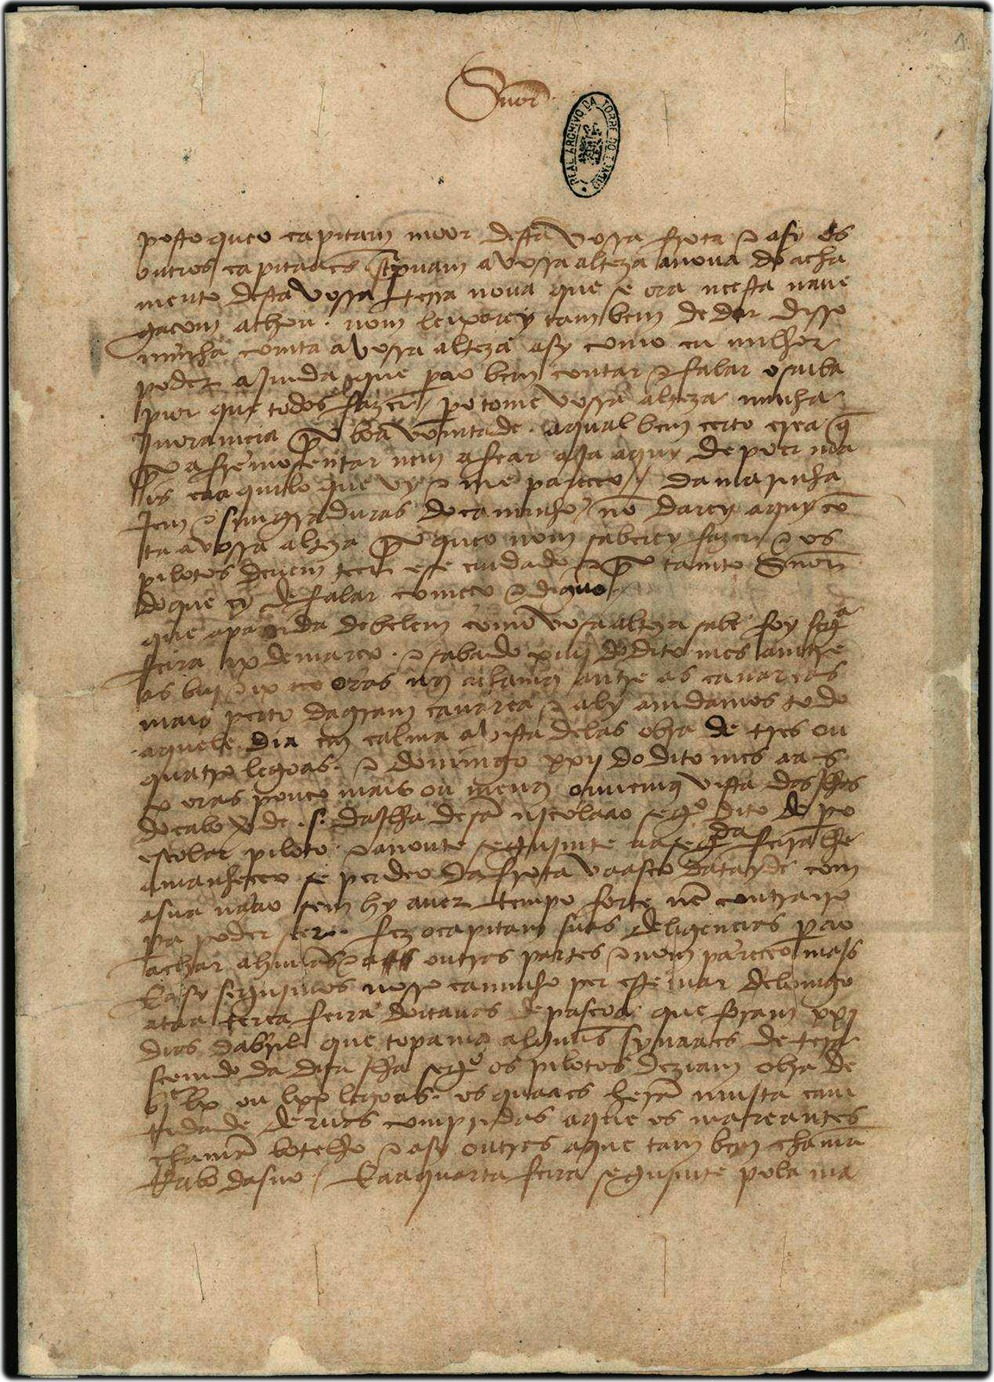 Snor
REAL ARCHIVO DA TORRE DO TOMBO
posto queo capitam moor desta vossa frota e asy os
outros capitaães screpuam a vossa alteza anova do acha
mento desta vossa terra noua que se ora neesta naue
gaçom achou. nom leixarey tambem de dar disso
minha comta avossa alteza asy como eu milhor
poder ajmda que pera o bem contar e falar o saiba
pior que todos fazer / pero tome vossa alteza minha
jnoramçia por boa vomtade. aqual bem çerto crea q
por afremosentar nem afear aja aquy de poer ma
is caaquilo que vy e me pareçeo / da marinha
jem e simgraduras do caminho nõ darey aquy cõ
ta a vossa alteza por queo nom saberey fazer e os
pilotos deuem teer ese cuidado e por tamto Snor
do que ey de falar começo e diguo /
que apartida de belem como vosa alteza sabe foy segª
feira ix de março. e sabado xiiij do dito mes amtre
as biij e ix oras nos achamos antre as canareas
mais perto da gram canarea e aly amdamos todo
aquele dia em calma a vista delas obra de tres ou
quatro legoas. e domingo xxij do dito mes aas
x oras pouco mais ou menos ouuemos vista das jlhas
do cabo verde .s. da jlha de sã njcolaao segº dito de pº
escolar piloto. e anoute segujmte aa segª feira lhe
da
amanheçeo se perdeo da frota vaasco datayde com
a sua naao sem hy auer tempo forte nẽ contrairo
pera poder seer. fez o capitam suas deligençias perao
achar ahuũas e a outras partes e nom pareçeo majs
E asy segujmos nosso caminho per este mar delomgo
ataa terça feira doitauas de pascoa que foram xxj
dias dabril que topamos alguũs synaaes de terra
seemdo da dita jlha segº os pilotos deziam obra de
bjc lx ou lxx legoas. os quaaes herã mujta cam
tidade deruas compridas aque os mareantes
chamã botelho e asy outras aque tam bem chamã
Rabo dasno / E aaquarta feira segujmte pola ma